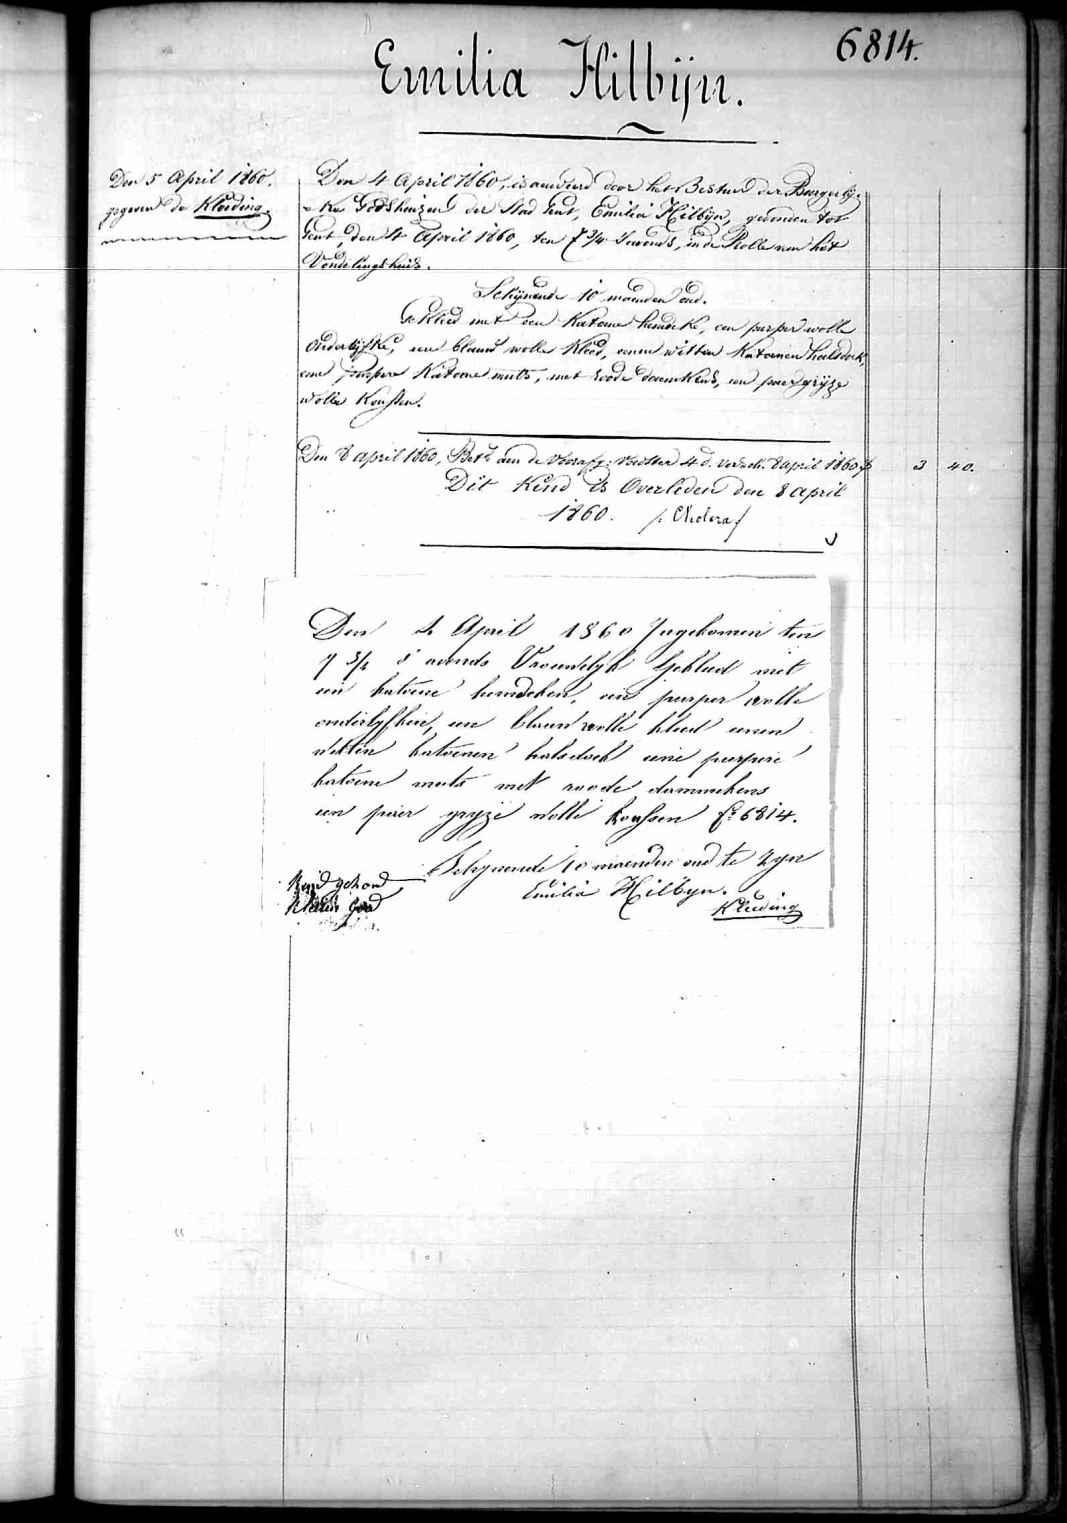 6814.
Emilia Hilbijn.
Den 5 April 1860.
gegeven de Kleeding.
Den 4 April 1860, is aenveerd door het Bestuur der Burgerlij-
-ke Godshuizen der Stad Gent, Emilia Hilbijn, gevonden tot
Gent, den 4 April 1860, ten 7 3/4 's avonds, in de Rolle van het
Vondelingshuis.
Schijnende 10 maenden oud.
Gekleed met een Katoene hemdeke, een purper wolle
onderlijfke, een blauw wolle kleed, eenen witten Katoenen halsdoek,
eene purpere Katoene muts, met roode dammekens, een paer grijze
wolle Koussen.
Den 8 april 1860, Bet. aan de 4 d. 8 april 1860 3 40.
Dit Kind is Overleden den 8 April
1860. /: Cholera /
Den 4 April 1860 Ingekomen ten
7 3/4 s' avonds Vrouwelyk Gekleed met
een katoene hemdeken, een purper wolle
onderlyfken, een blauw wolle kleed eenen
witten katoenen halsdoek eene purpere
katoene muts met roode dammekens
een paer gryze wolle koussen f° 6814.
Schynende 10 maenden oud te zyn
Emilia Hilbyn.
Kleeding